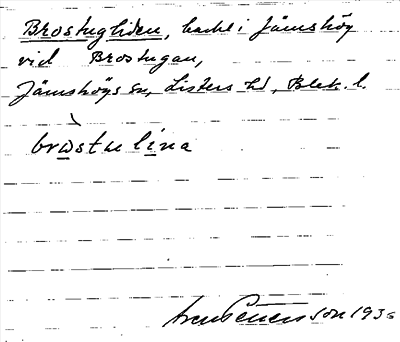 Brostugliden, backe i Jämshög
vid Brostugan,
Jämshögs sn, Listers hd, Blek. l.
brωstulina
Petterson 1936